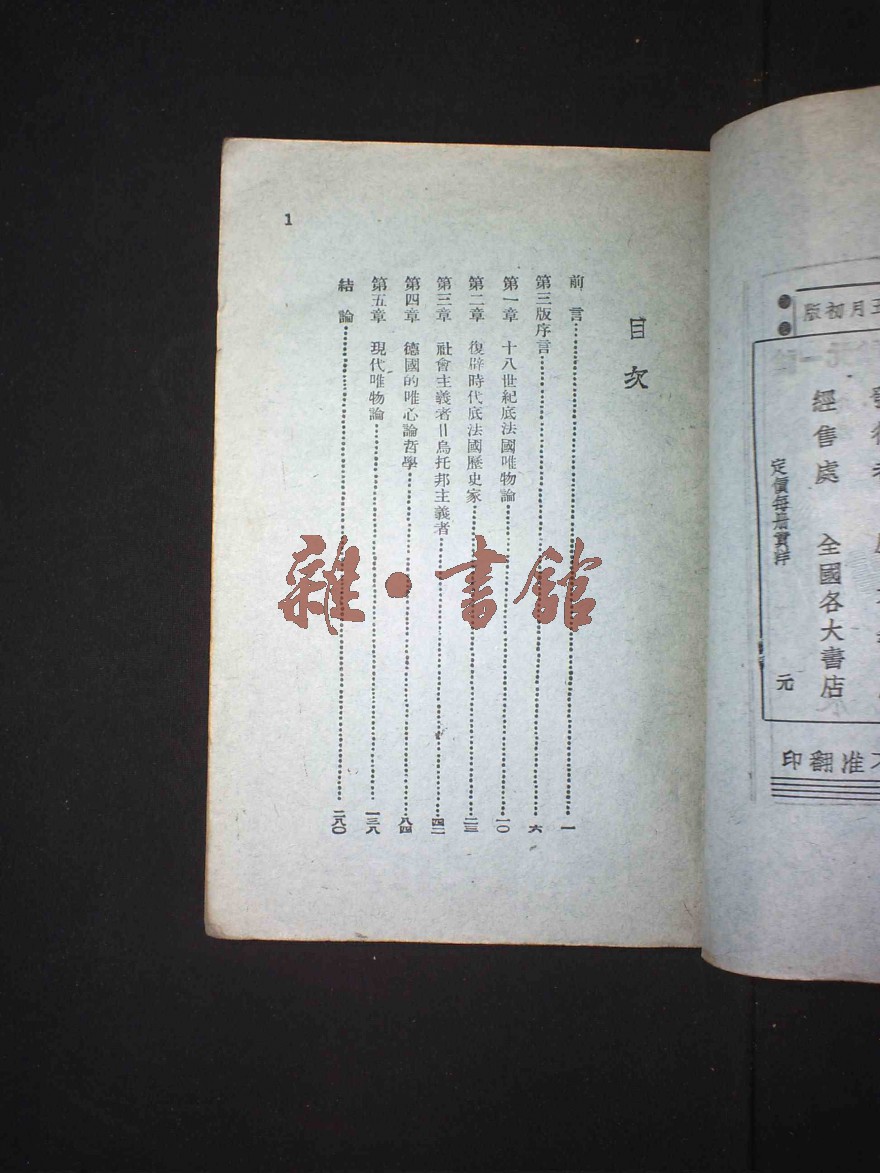 目次
前言 一
第三版序言 六
第一章 十八世紀底法國唯物論 一〇
第二章 復辟時代底法國歷史家 二三
第三章 社會主義者=烏托邦主義者 四二
第四章 德國的唯心論哲學 八四
第五章 現代唯物論 一三八
結論 二八〇
1
雜·書館
月初版
經售處 全國各大書店
定價每册實洋 元
准翻印